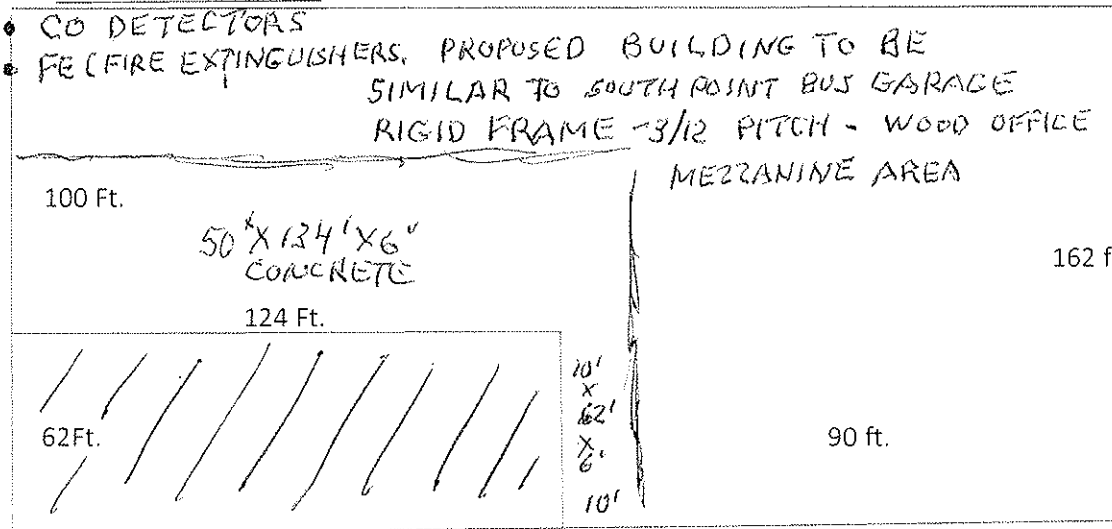 • CO DETECTORS
• FE (FIRE EXTINGUISHERS. PROPOSED BUILDING TO BE
SIMILAR TO SOUTH POINT BUS GARAGE
RIGID FRAME - 3/12 PITCH - WOOD OFFICE
MEZZANINE AREA
100 Ft.
50' X 134' X 6"
CONCRETE
162 f
124 Ft.
10'
X
62'
X
6"
62Ft.
90 ft.
10'